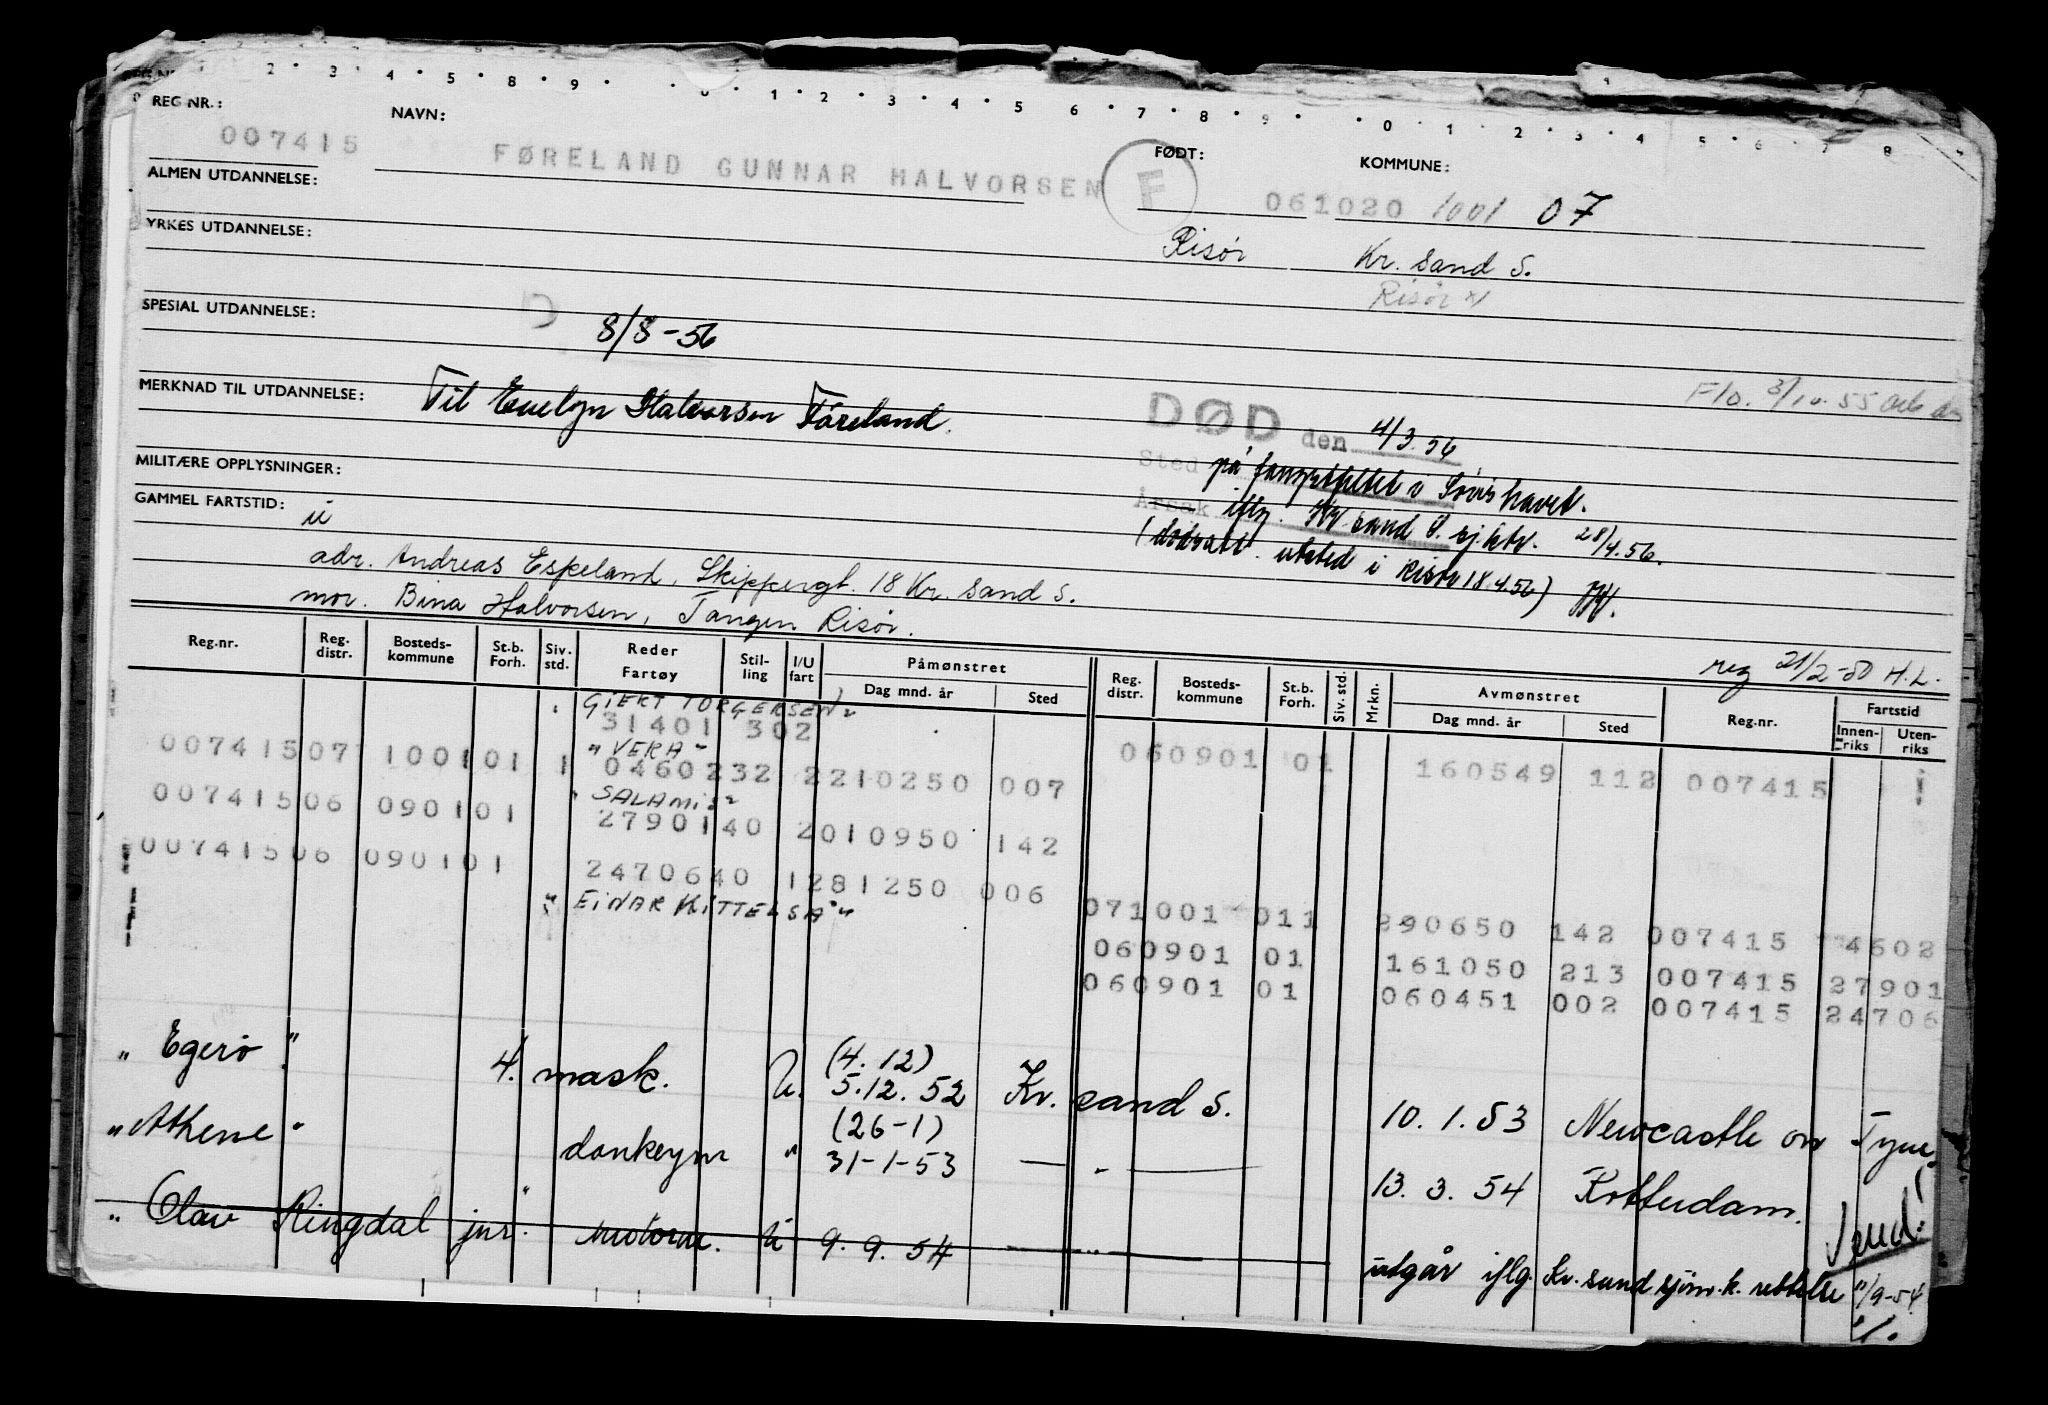 REG NR.:
007415
NAVN:
FØRELAND GUNNAR HALVORSEN
F
FØDT:
061020
KOMMUNE:
1001 07
Risør
Kr. sand S.
Risør
ALMEN UTDANNELSE:
YRKES UTDANNELSE:
SPESIAL UTDANNELSE:
8/8-56
MERKNAD TIL UTDANNELSE:
Til Evelyn Halvorsen Føreland.
DØD den 4/3.56
Sted på fangstfeltet i Sørishavet.
Årsak iflg. Kr sand S. sj.ktr. 28/4.56.
(dødsatt. utsted i Risør 18.4.56)
MILITÆRE OPPLYSNINGER:
GAMMEL FARTSTID:
u
adr. Andreas Espeland, Skippergt. 18 Kr. sand S.
mor. Bina Halvorsen, Tangen Risør.
reg 21/2-50 H.L.
Reg.nr. Reg. distr. Bosteds-kommune St.b. Forh. Siv. std. Reder Fartøy Stil-ling I/U fart Påmønstret Dag mnd. år Sted Reg. distr. Bosteds-kommune St.b. Forh. Siv. std. Mrkn. Avmønstret Dag mnd. år Sted Reg.nr. Fartstid Innen-riks Uten-riks
"GJERT TORGERSEN"
31401 302
060901 01 160549 112 007415
"VERA"
00741507 100101 1 0460232 2210250 007
"SALAMIS"
00741506 090101 2790140 2010950 142
00741506 090101 2470640 1281250 006
"EINAR KITTELSA"
071001 011 290650 142 007415 4602
060901 01 161050 213 007415 27901
060901 01 060451 002 007415 24706
"Egerø" 4. mask. U. (4.12) 5.12.52 Kr. sand S. 10.1.53 Newcastle on Tyne
"Athene" donkeym " (26-1) 31-1-53 — " — 13.3.54 Rotterdam.
"Olav Ringdal jnr." motorm. u 9.9.54 — " — utgår iflg. Kr. sand sjøm.k. rettelse 11/9-54